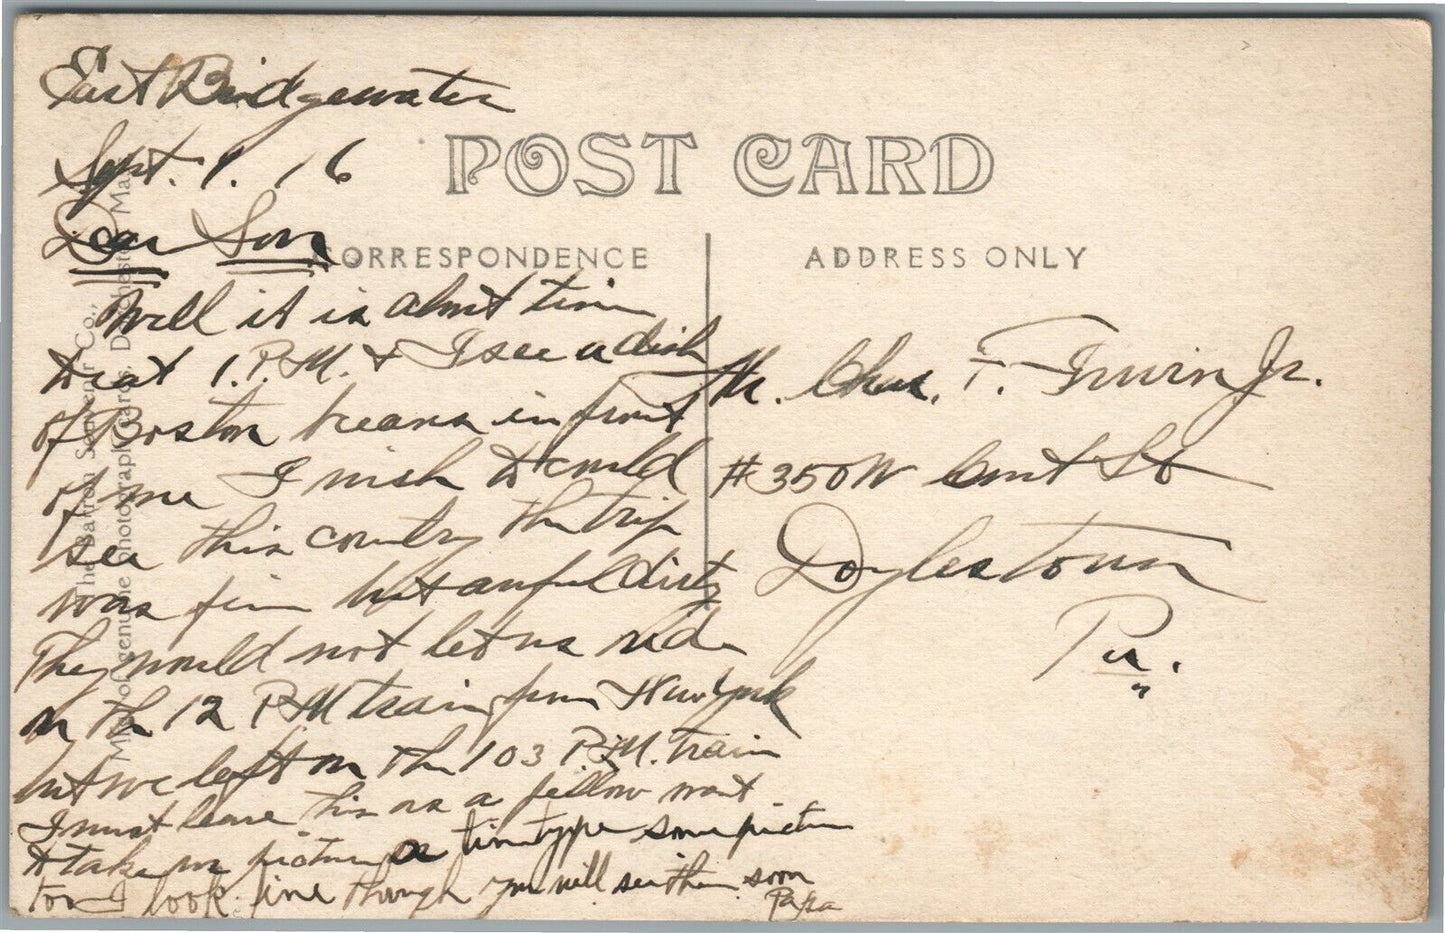 East Bridgewater
Sept. 1. 16
Dear Son
Well it is about time
to eat 1. P.M. & I see a dish
of Boston beans in front
of me I wish you could
see this country the trip
was fine but awful dirty
They would not let us ride
on the 12 P.M train from New York
but we left on the 103 P.M. train
I must leave this as a fellow want
to take my picture a tintype some picture
too I look fine though you will see them soon
Papa
POST CARD
CORRESPONDENCE
ADDRESS ONLY
Mr. Chas. F. Irwin Jr.
#350 W Court St
Doylestown
Pa.
The Batron Souvenir Co.,
Mfrs. of genuine photographic cards, Dorchester, Mass.